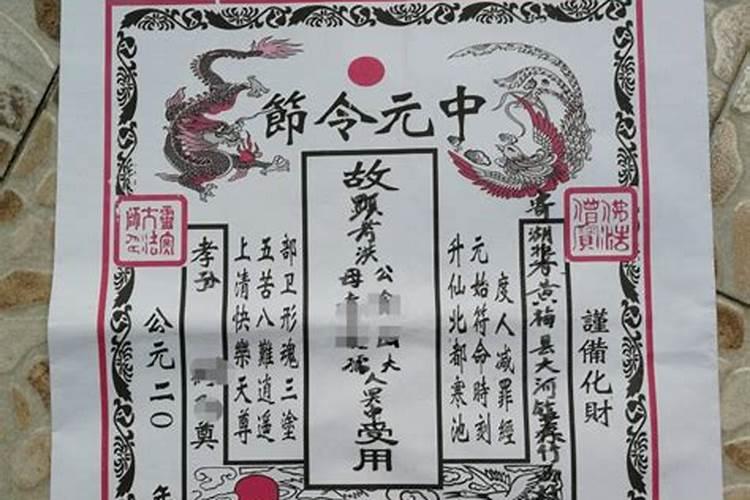 中元令節
佛法僧寶
謹備化財
寄湖北黄梅县大河镇
度人减罪經
元始符命時刻
升仙北都寒池
故顯考洪公大人冥中受用
母孺
部卫形魂三塗
五苦八難逍遥
上清快樂天尊
孝孙奠
靈寶大法師印
公元二〇年